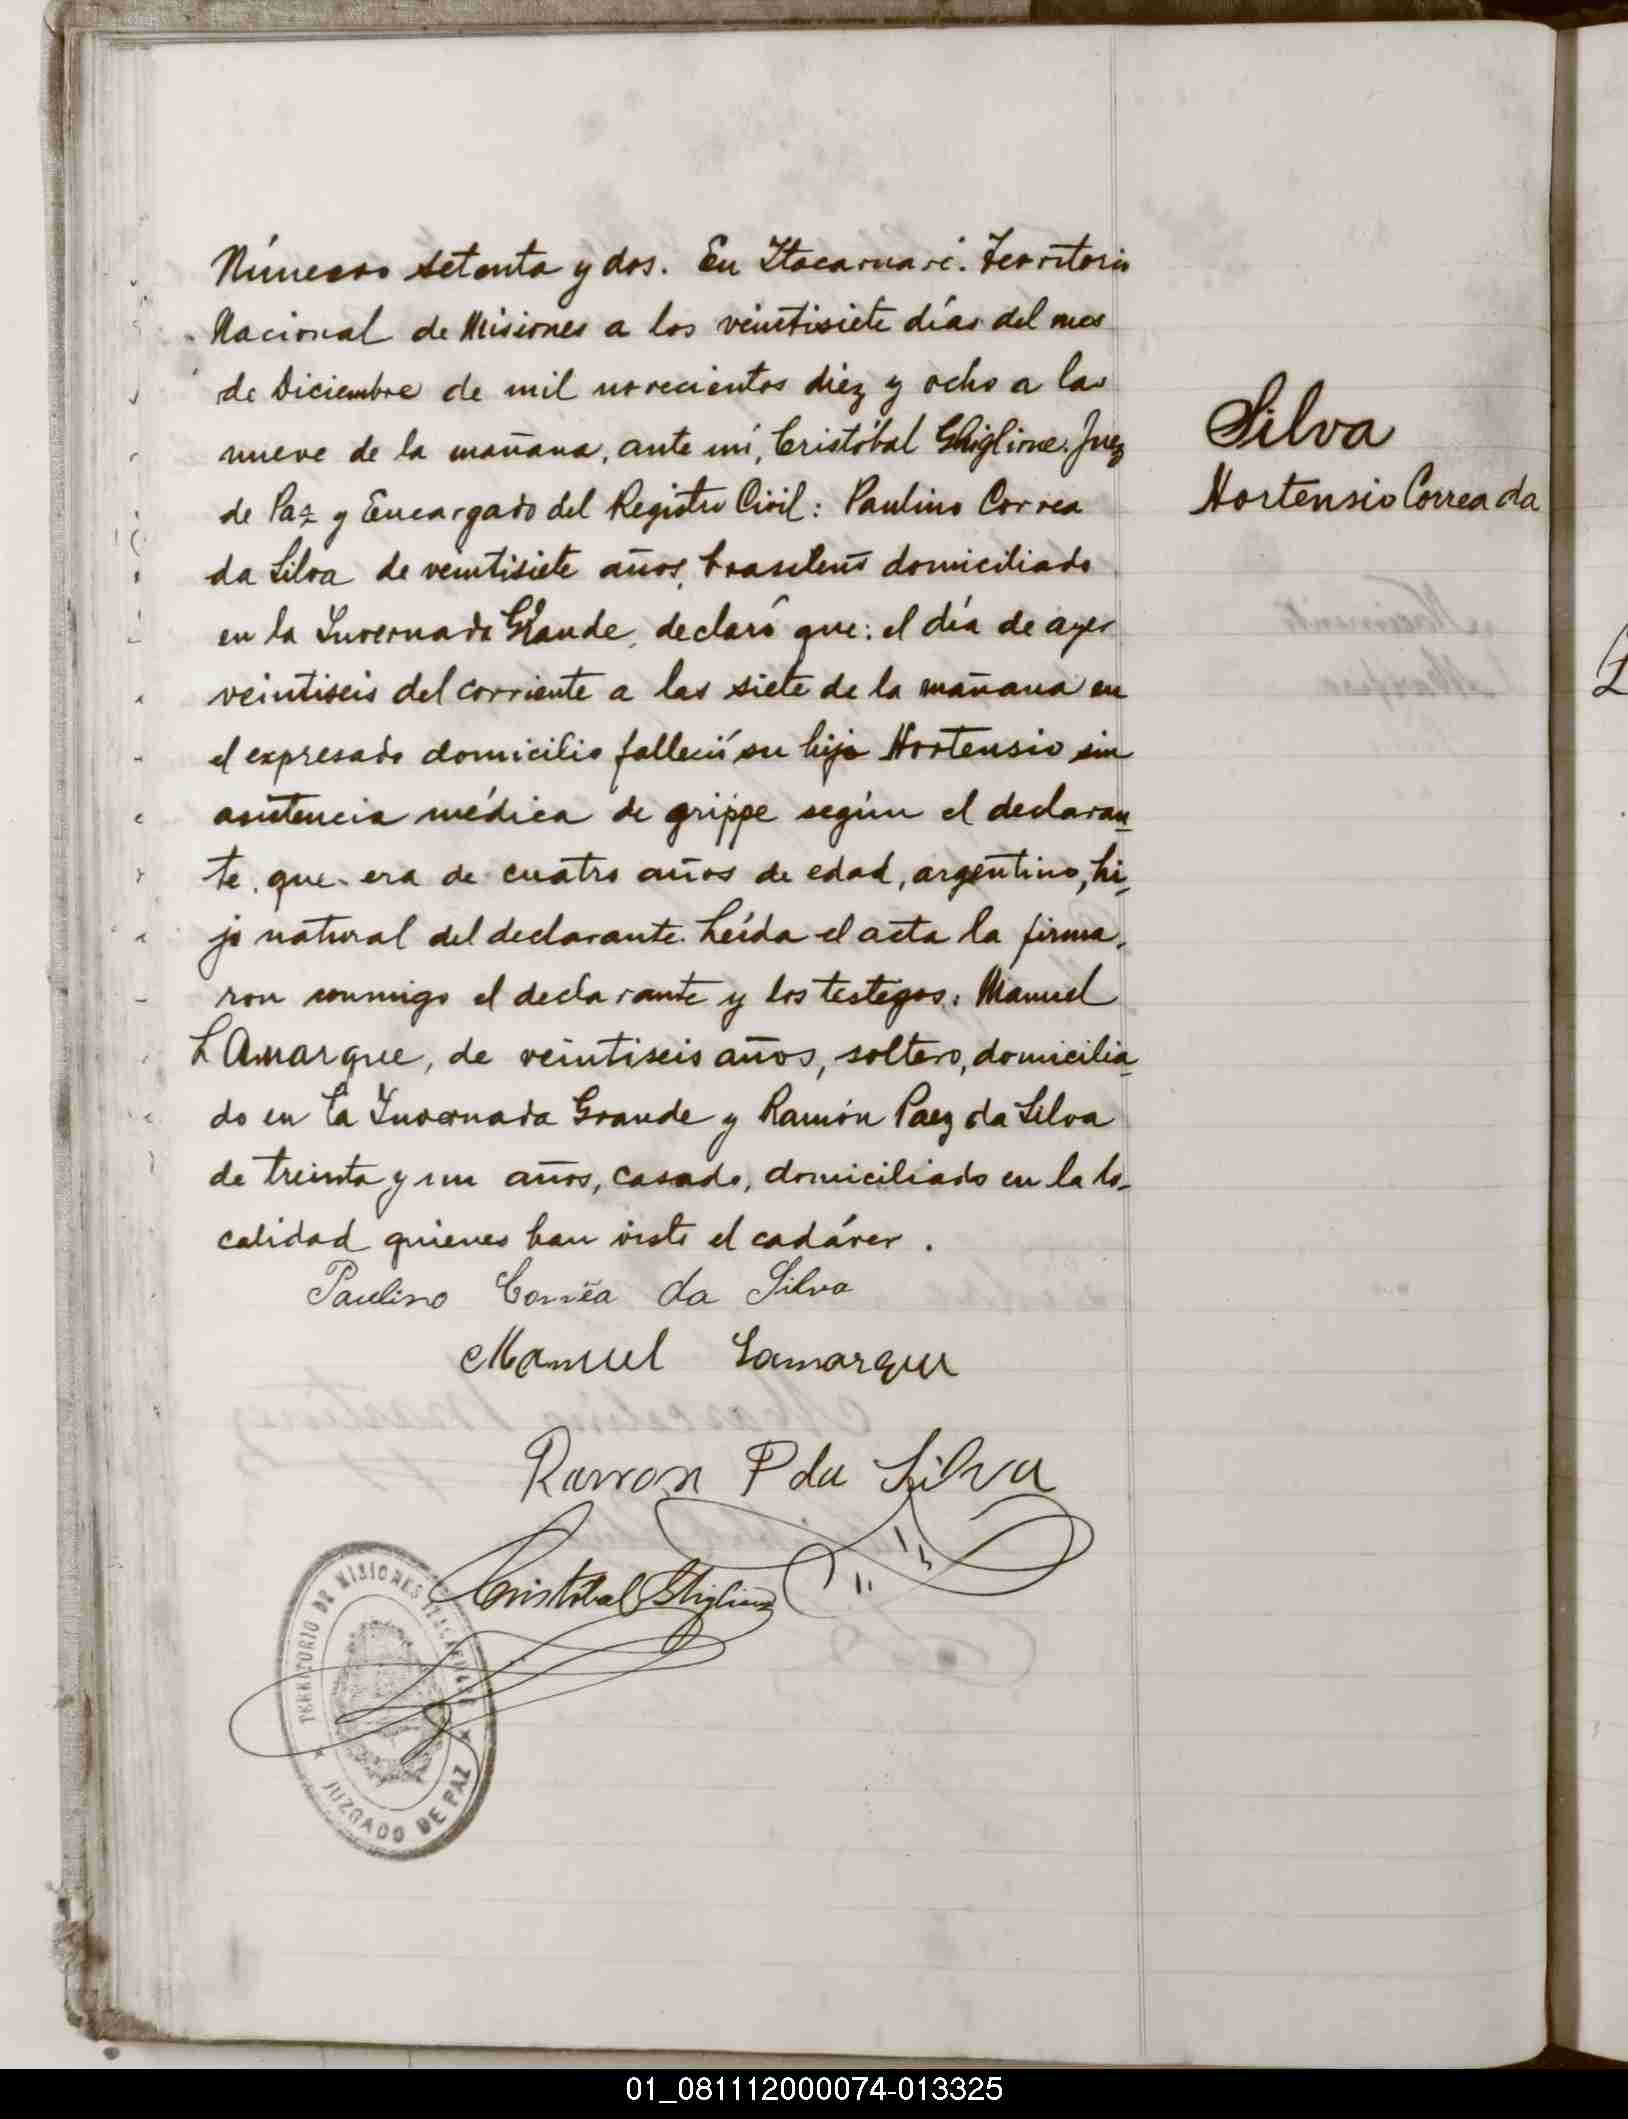 Número setenta y dos. En Itacaruaré. Territorio
Nacional de Misiones a los veintisiete días del mes
de Diciembre de mil novecientos diez y ocho a las
nueve de la mañana, ante mí, Cristóbal Ghiglione. Juez
de Paz y Encargado del Registro Civil: Paulino Correa
da Silva de veintisiete años, brasileño domiciliado
en la Invernada Grande, declaró que: el día de ayer
veintiseis del corriente a las siete de la mañana en
el expresado domicilio falleció su hijo Hortensio sin
asistencia médica de grippe según el declaran-
te, que era de cuatro años de edad, argentino, hi-
jo natural del declarante. Leída el acta la firma-
ron conmigo el declarante y los testigos: Manuel
LAmarque, de veintiseis años, soltero, domicilia-
do en la Invernada Grande y Ramón Paez da Silva
de treinta y un años, casado, domiciliado en la lo-
calidad quienes han visto el cadáver.
Paulino Corrêa da Silva
Manuel Lamarque
Ramon P da Silva
Cristóbal Ghiglione
TERRITORIO DE MISIONES ITACARUARE
JUZGADO DE PAZ
Silva
Hortensio Correa da
01_081112000074-013325